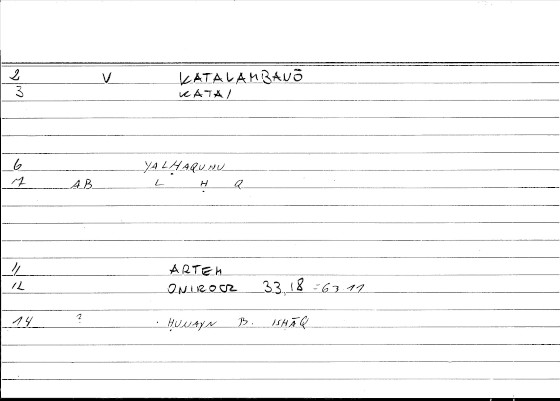 2 V KATALAMBANŌ
3 KATA/
6 YALḤAQUNU
7 AB L Ḥ Q
11 ARTEM
12 ONIROCR 33,18 = 63 11
14 ? ḤUNAYN B. ISḤĀQ